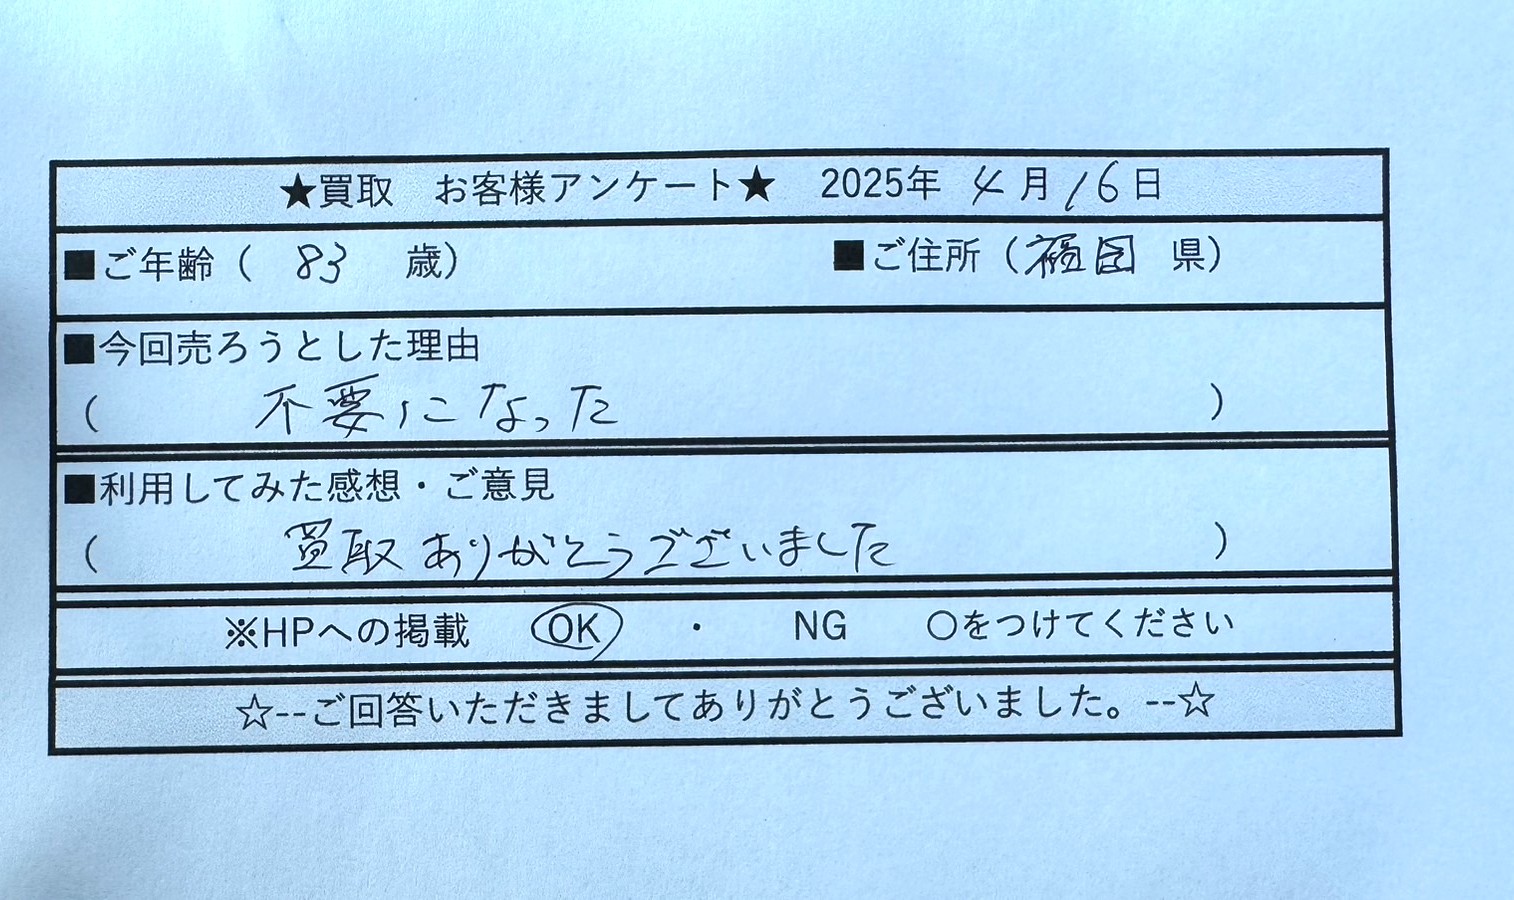 ★買取　お客様アンケート★　2025年 4月16日
■ご年齢（ 83 歳）　■ご住所（福岡 県）
■今回売ろうとした理由
（ 不要になった ）
■利用してみた感想・ご意見
（ 買取ありがとうございました ）
※HPへの掲載　OK　・　NG　〇をつけてください
☆--ご回答いただきましてありがとうございました。--☆